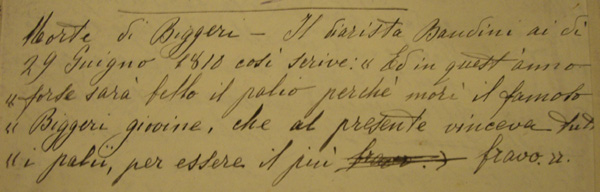 Morte di Biggeri - Il diarista Bandini ai dì
29 Guigno 1810 così scrive: « Ed in quest'anno
« forse sarà bello il palio perchè morì il famoso
« Biggeri giovine, che al presente vinceva tutti
« i palii, per essere il più bravo. »